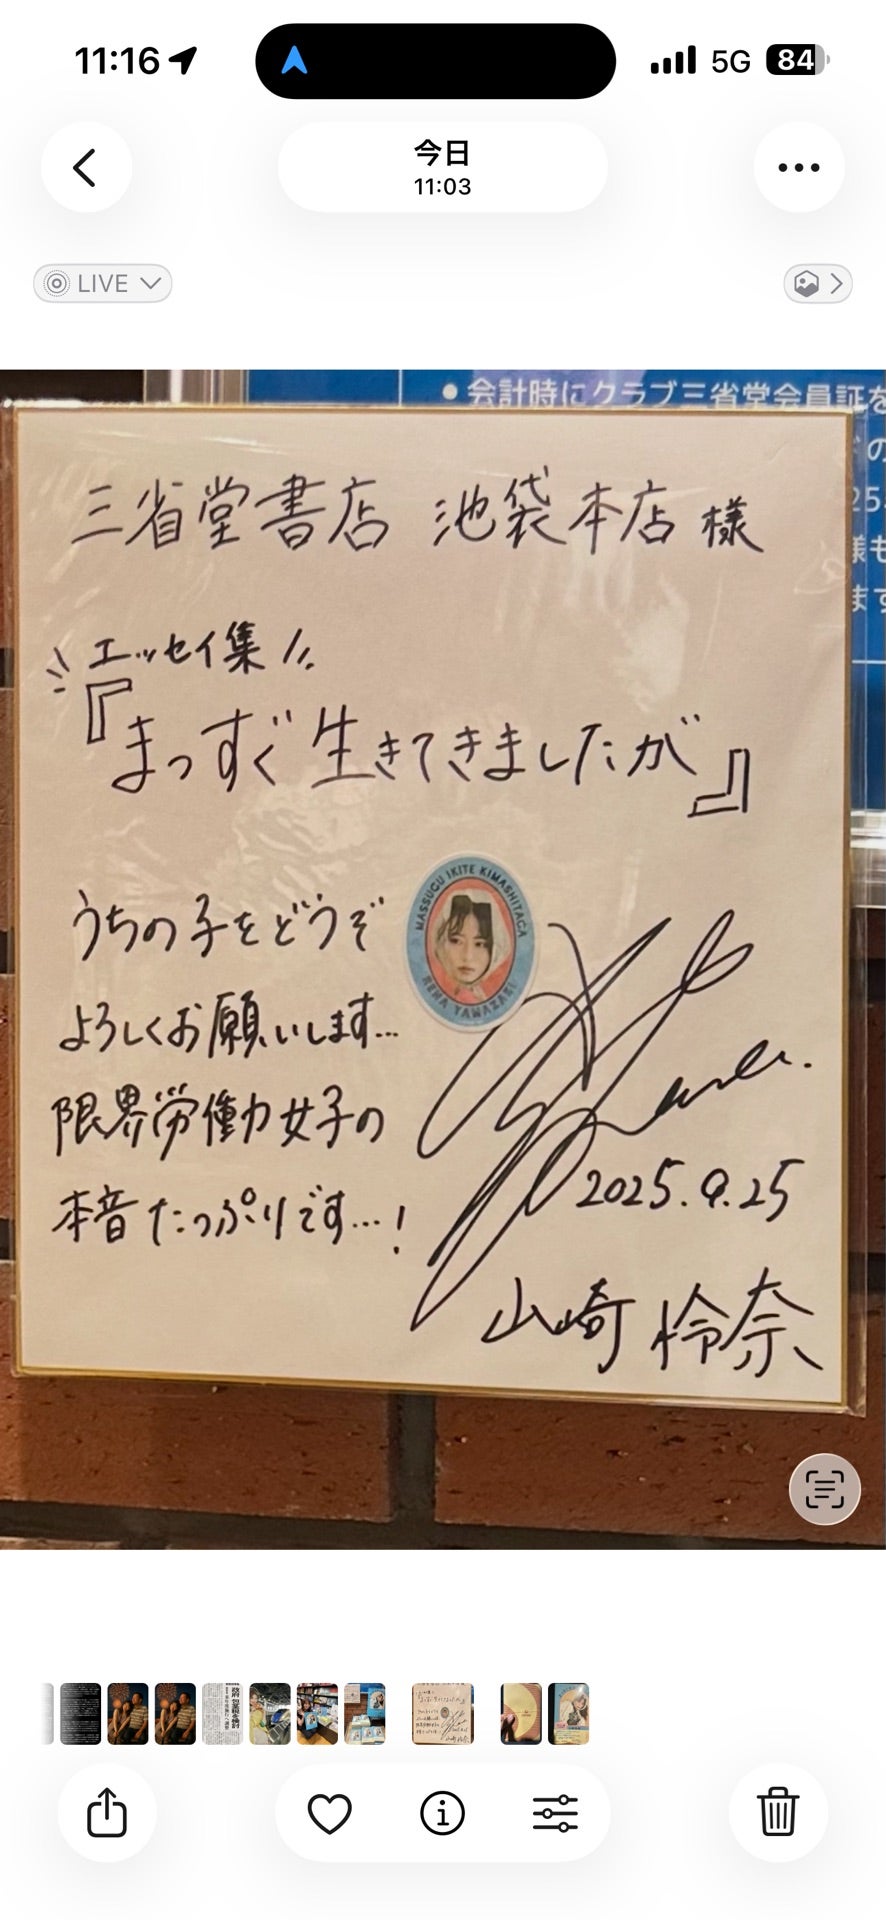 11:16
5G
84
今日
11:03
LIVE
会計時にクラブ三省堂会員証を
三省堂書店 池袋本店 様
エッセイ集!!
『まっすぐ生きてきましたが』
MASSUGU IKITE KIMASHITAGA
RENA YAMAZAKI
うちの子をどうぞ
よろしくお願いします…
限界労働力女子の
本音たっぷりです…!
2025.9.25
山崎 怜奈